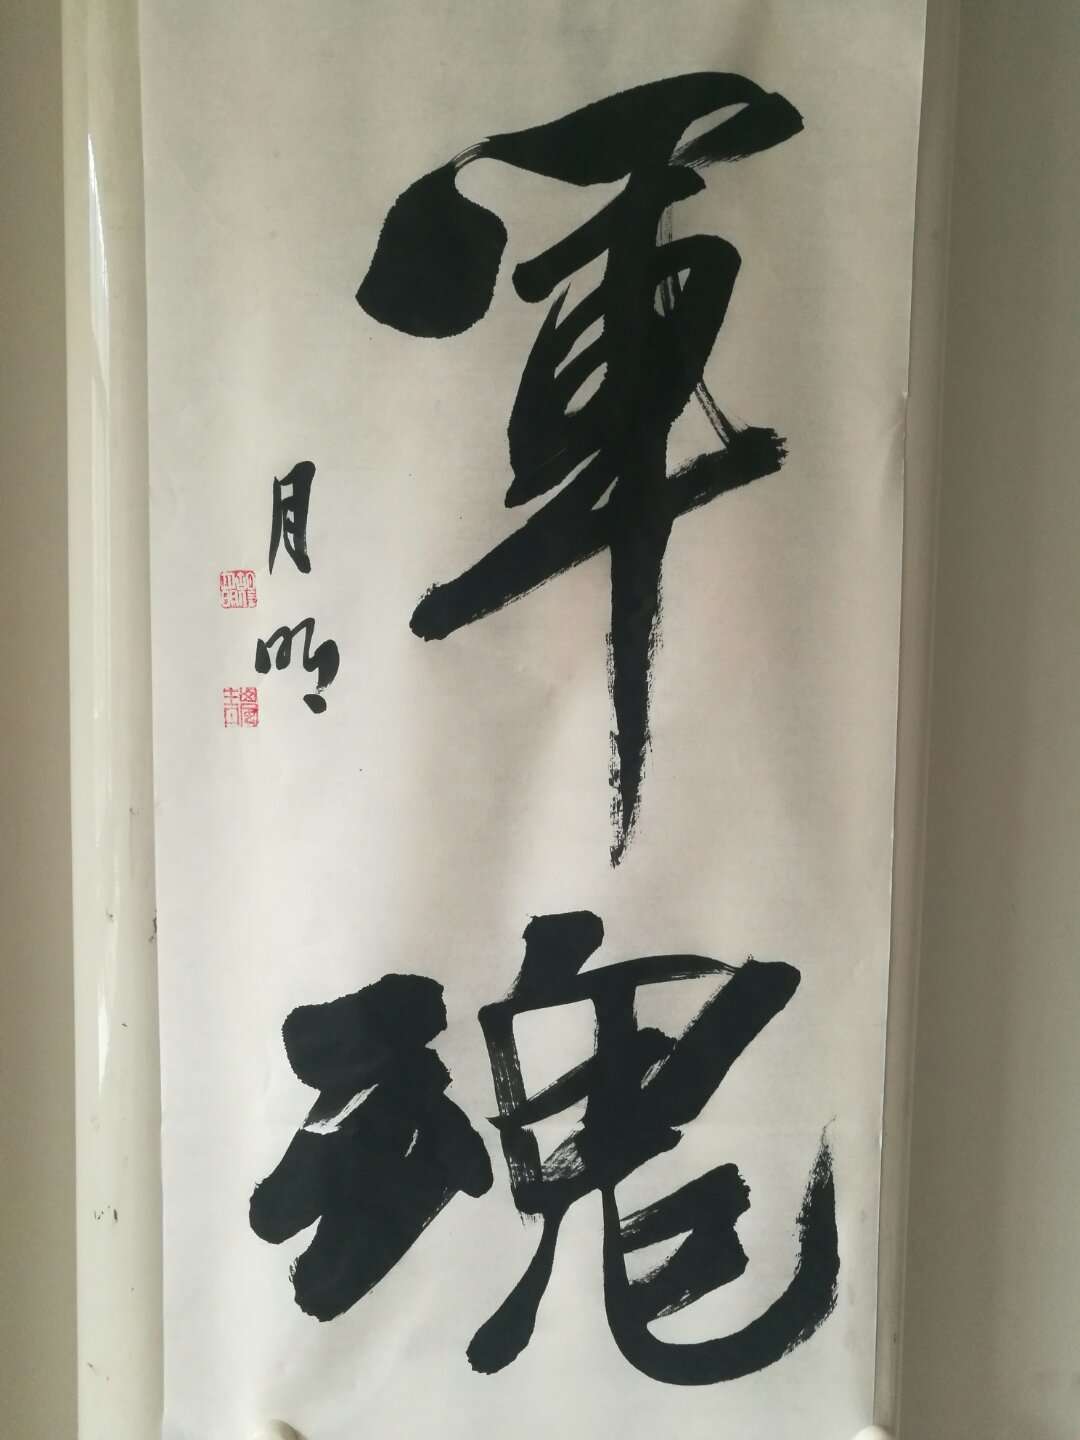 軍魂
月明